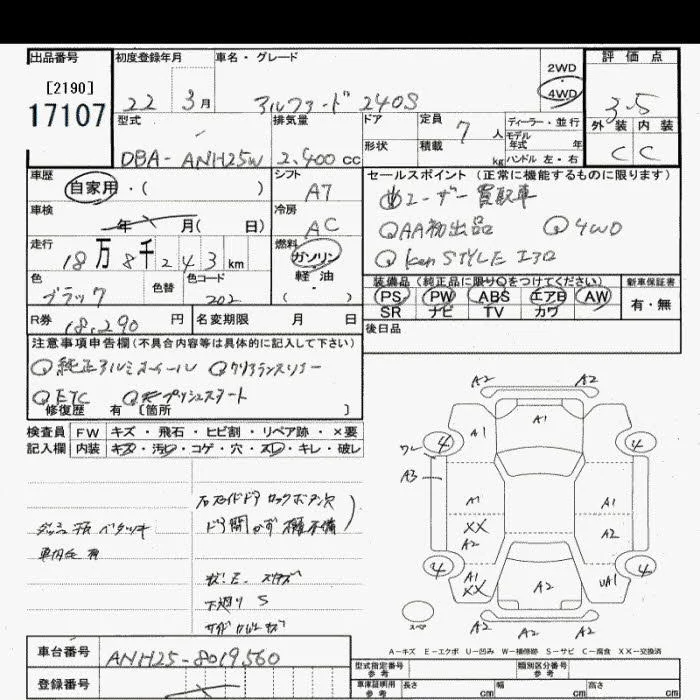 出品番号 初度登録年月 車名・グレード 評価点
[2190] 2WD
17107 22 3月 アルファード 240S 4WD 3.5
型式 排気量 ドア 定員 7 人 ディーラー・並行 外装 内装
モデル年式 年
DBA-ANH25W 2,400 cc 形状 積載 kg ハンドル 左・右 C C
車歴 シフト セールスポイント(正常に機能するものに限ります)
自家用・( ) A7 ユーザー買取車
車検 冷房 AA初出品 4WD
年 月( 日) AC
走行 燃料
18万8千243km ガソリン
色 色替 色コード 軽油 装備品(純正品に限り○をつけてください) 新車保証書
ブラック 202 ( ) PS PW ABS エアB AW 有・無
SR ナビ TV カワ
R券 18,290 円 名変期限 月 日 後日品
注意事項申告欄(不具合内容等は具体的に記入して下さい)
純正アルミホイール クリアランスソナー
ETC プッシュスタート
修復歴 有 〔箇所 〕
検査員 FW キズ・飛石・ヒビ割・リペア跡・×要
記入欄 内装 キズ・汚レ・コゲ・穴・スレ・キレ・破レ
ドア開かず
下廻り S
A2 A2
A1
A1
4 4
A3
A1 A1
XX A2
A2
4 4
A1 A2 UA1
XX
スペア A2 A2 A2
A-キズ E-エクボ U-凹み W-補修跡 S-サビ C-腐食 XX-交換済
車台番号 ANH25-8019560
登録番号
型式指定番号 参考 類別区分番号 参考
車庫証明用 参考 長さ cm 幅 cm 高さ cm